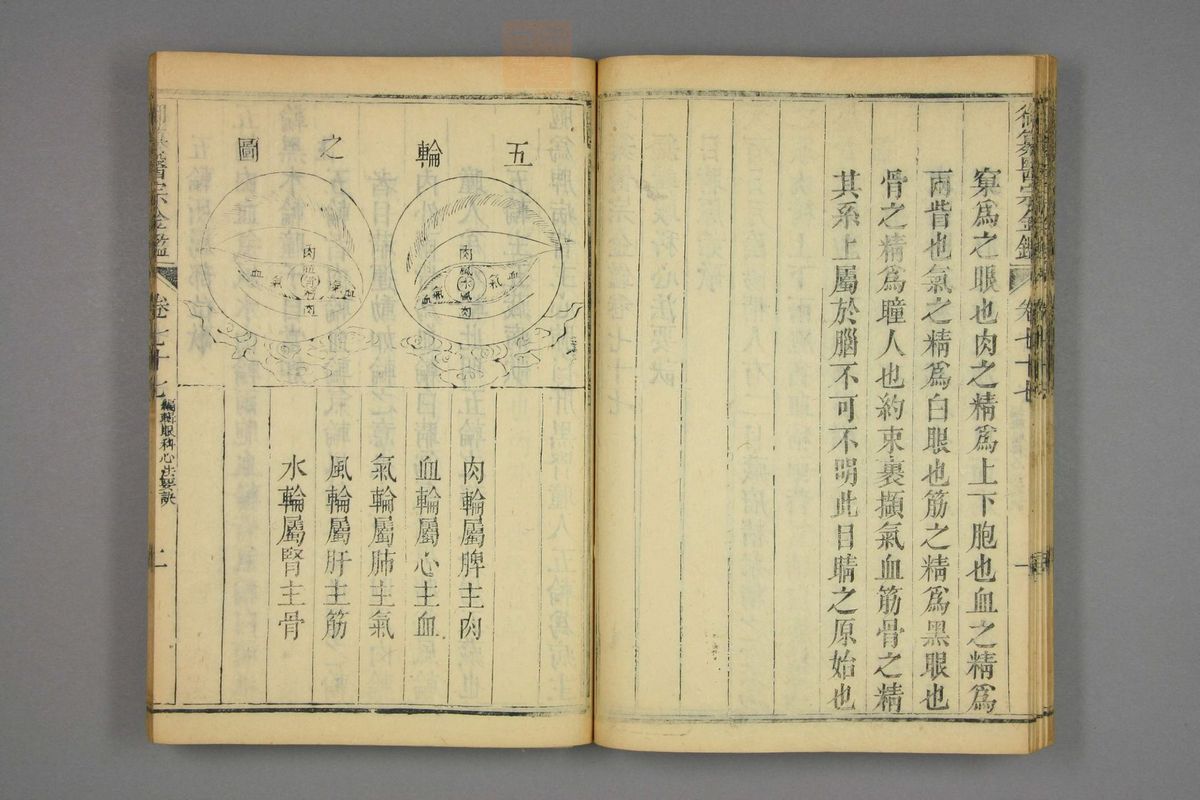 窠為之眼也肉之精為上下胞也血之精為
兩眥也氣之精為白眼也筋之精為黑眼也
骨之精為瞳人也約束裹擷氣血筋骨之精
其系上屬於腦不可不明此目睛之原始也
醫宗金鑑
卷七十七
一
五輪之圖
肉
氣
血
肉
肉
氣
血
肉
肉輪屬脾主肉
血輪屬心主血
氣輪屬肺主氣
風輪屬肝主筋
水輪屬腎主骨
醫宗金鑑
卷七十七
編輯眼科心法要訣